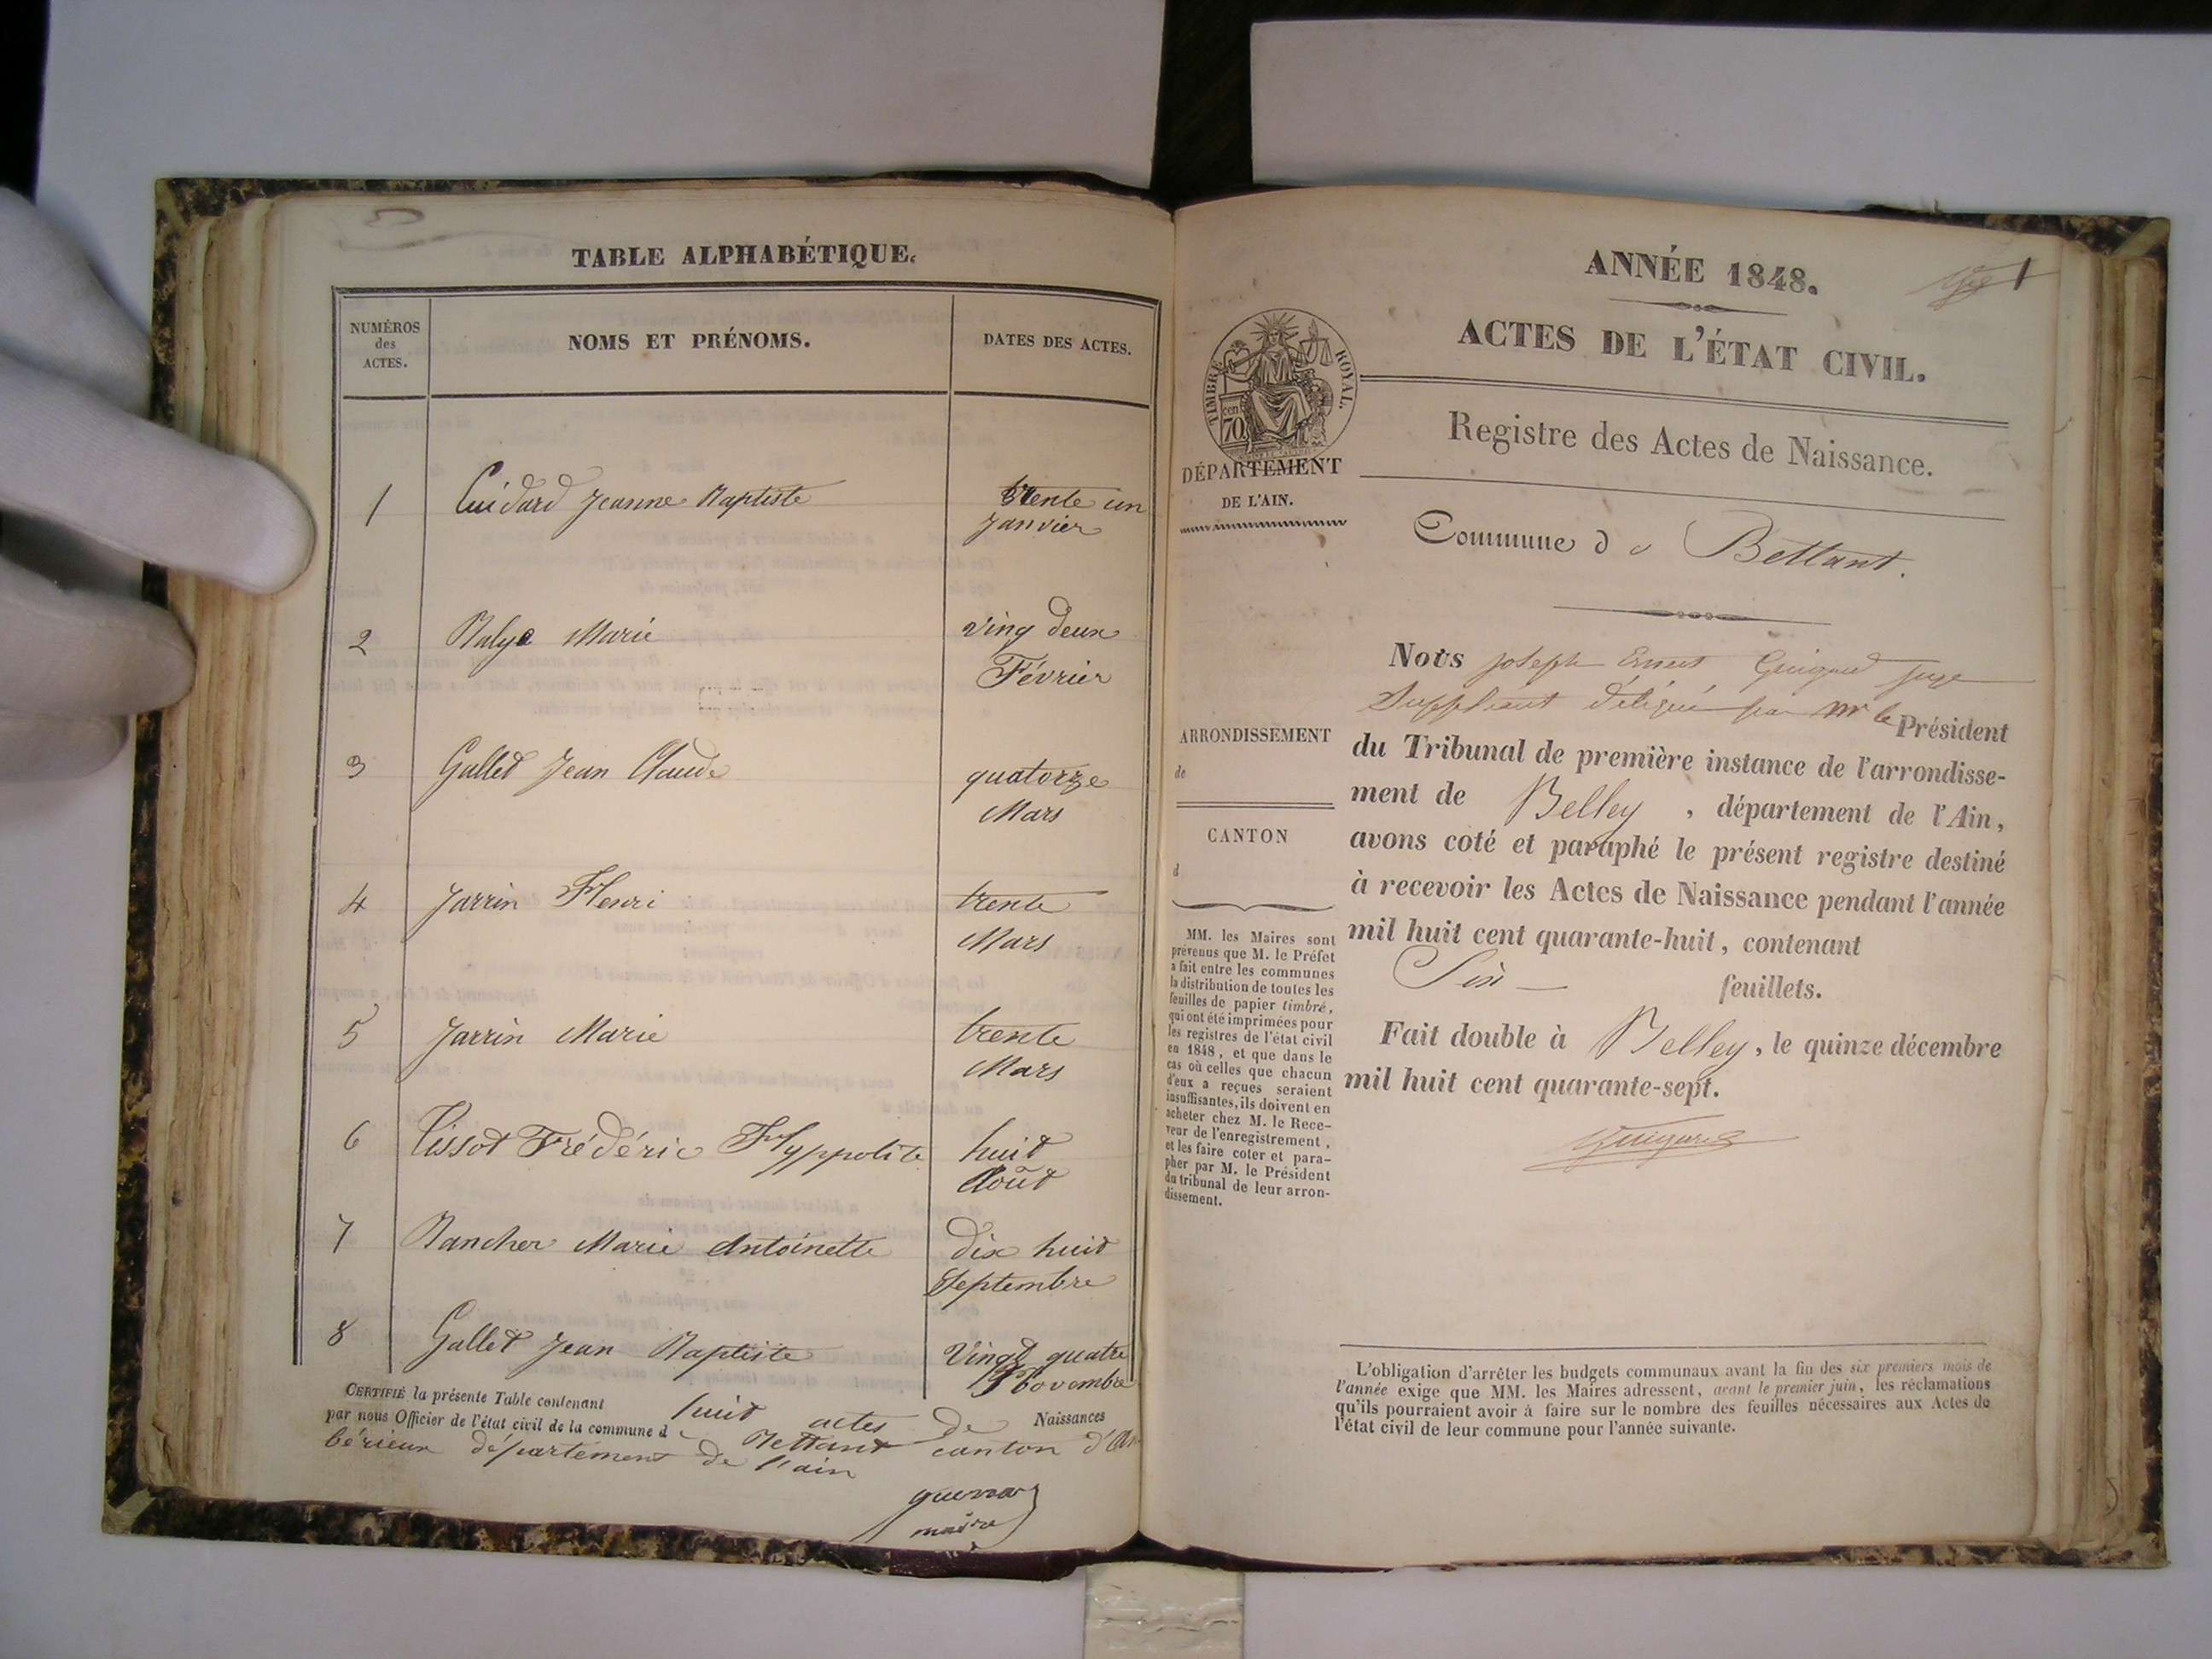 TABLE ALPHABÉTIQUE.
NUMÉROS
des
ACTES.
NOMS ET PRÉNOMS.
DATES DES ACTES.
1 Cuidard Jeanne Baptiste trente un
Janvier
2 Marie Ving deux
Février
3 Gallet Jean Claude quatorze
Mars
4 Jarrin Henri trente
Mars
5 Jarrin Marie trente
Mars
6 Tissot Frédéric Hyppolite huit
Août
7 Rancher Marie Antoinette dix huit
Septembre
8 Gallet Jean Baptiste Vingt quatre
Novembre
CERTIFIÉ la présente Table contenant huit actes de Naissances
par nous Officier de l'état civil de la commune d Bettant canton d'Am
bérieux département de l'ain
maire
1
ANNÉE 1848.
ACTES DE L'ÉTAT CIVIL.
TIMBRE ROYAL.
70 cen
Registre des Actes de Naissance.
DÉPARTEMENT
DE L'AIN.
Commune de Bettant.
Nous Joseph Ernest Guigard juge
Suppléant délégué par Mr le Président
du Tribunal de première instance de l'arrondisse-
ment de Belley, département de l'Ain,
avons coté et paraphé le présent registre destiné
à recevoir les Actes de Naissance pendant l'année
mil huit cent quarante-huit, contenant
Six feuillets.
Fait double à Belley, le quinze décembre
mil huit cent quarante-sept.
Guigard
ARRONDISSEMENT
de
CANTON
d
MM. les Maires sont
prévenus que M. le Préfet
a fait entre les communes
la distribution de toutes les
feuilles de papier timbré,
qui ont été imprimées pour
les registres de l'état civil
en 1848, et que dans le
cas où celles que chacun
d'eux a reçues seraient
insuffisantes, ils doivent en
acheter chez M. le Rece-
veur de l'enregistrement,
et les faire coter et para-
pher par M. le Président
du tribunal de leur arron-
dissement.
L'obligation d'arrêter les budgets communaux avant la fin des six premiers mois de
l'année exige que MM. les Maires adressent, avant le premier juin, les réclamations
qu'ils pourraient avoir à faire sur le nombre des feuilles nécessaires aux Actes de
l'état civil de leur commune pour l'année suivante.